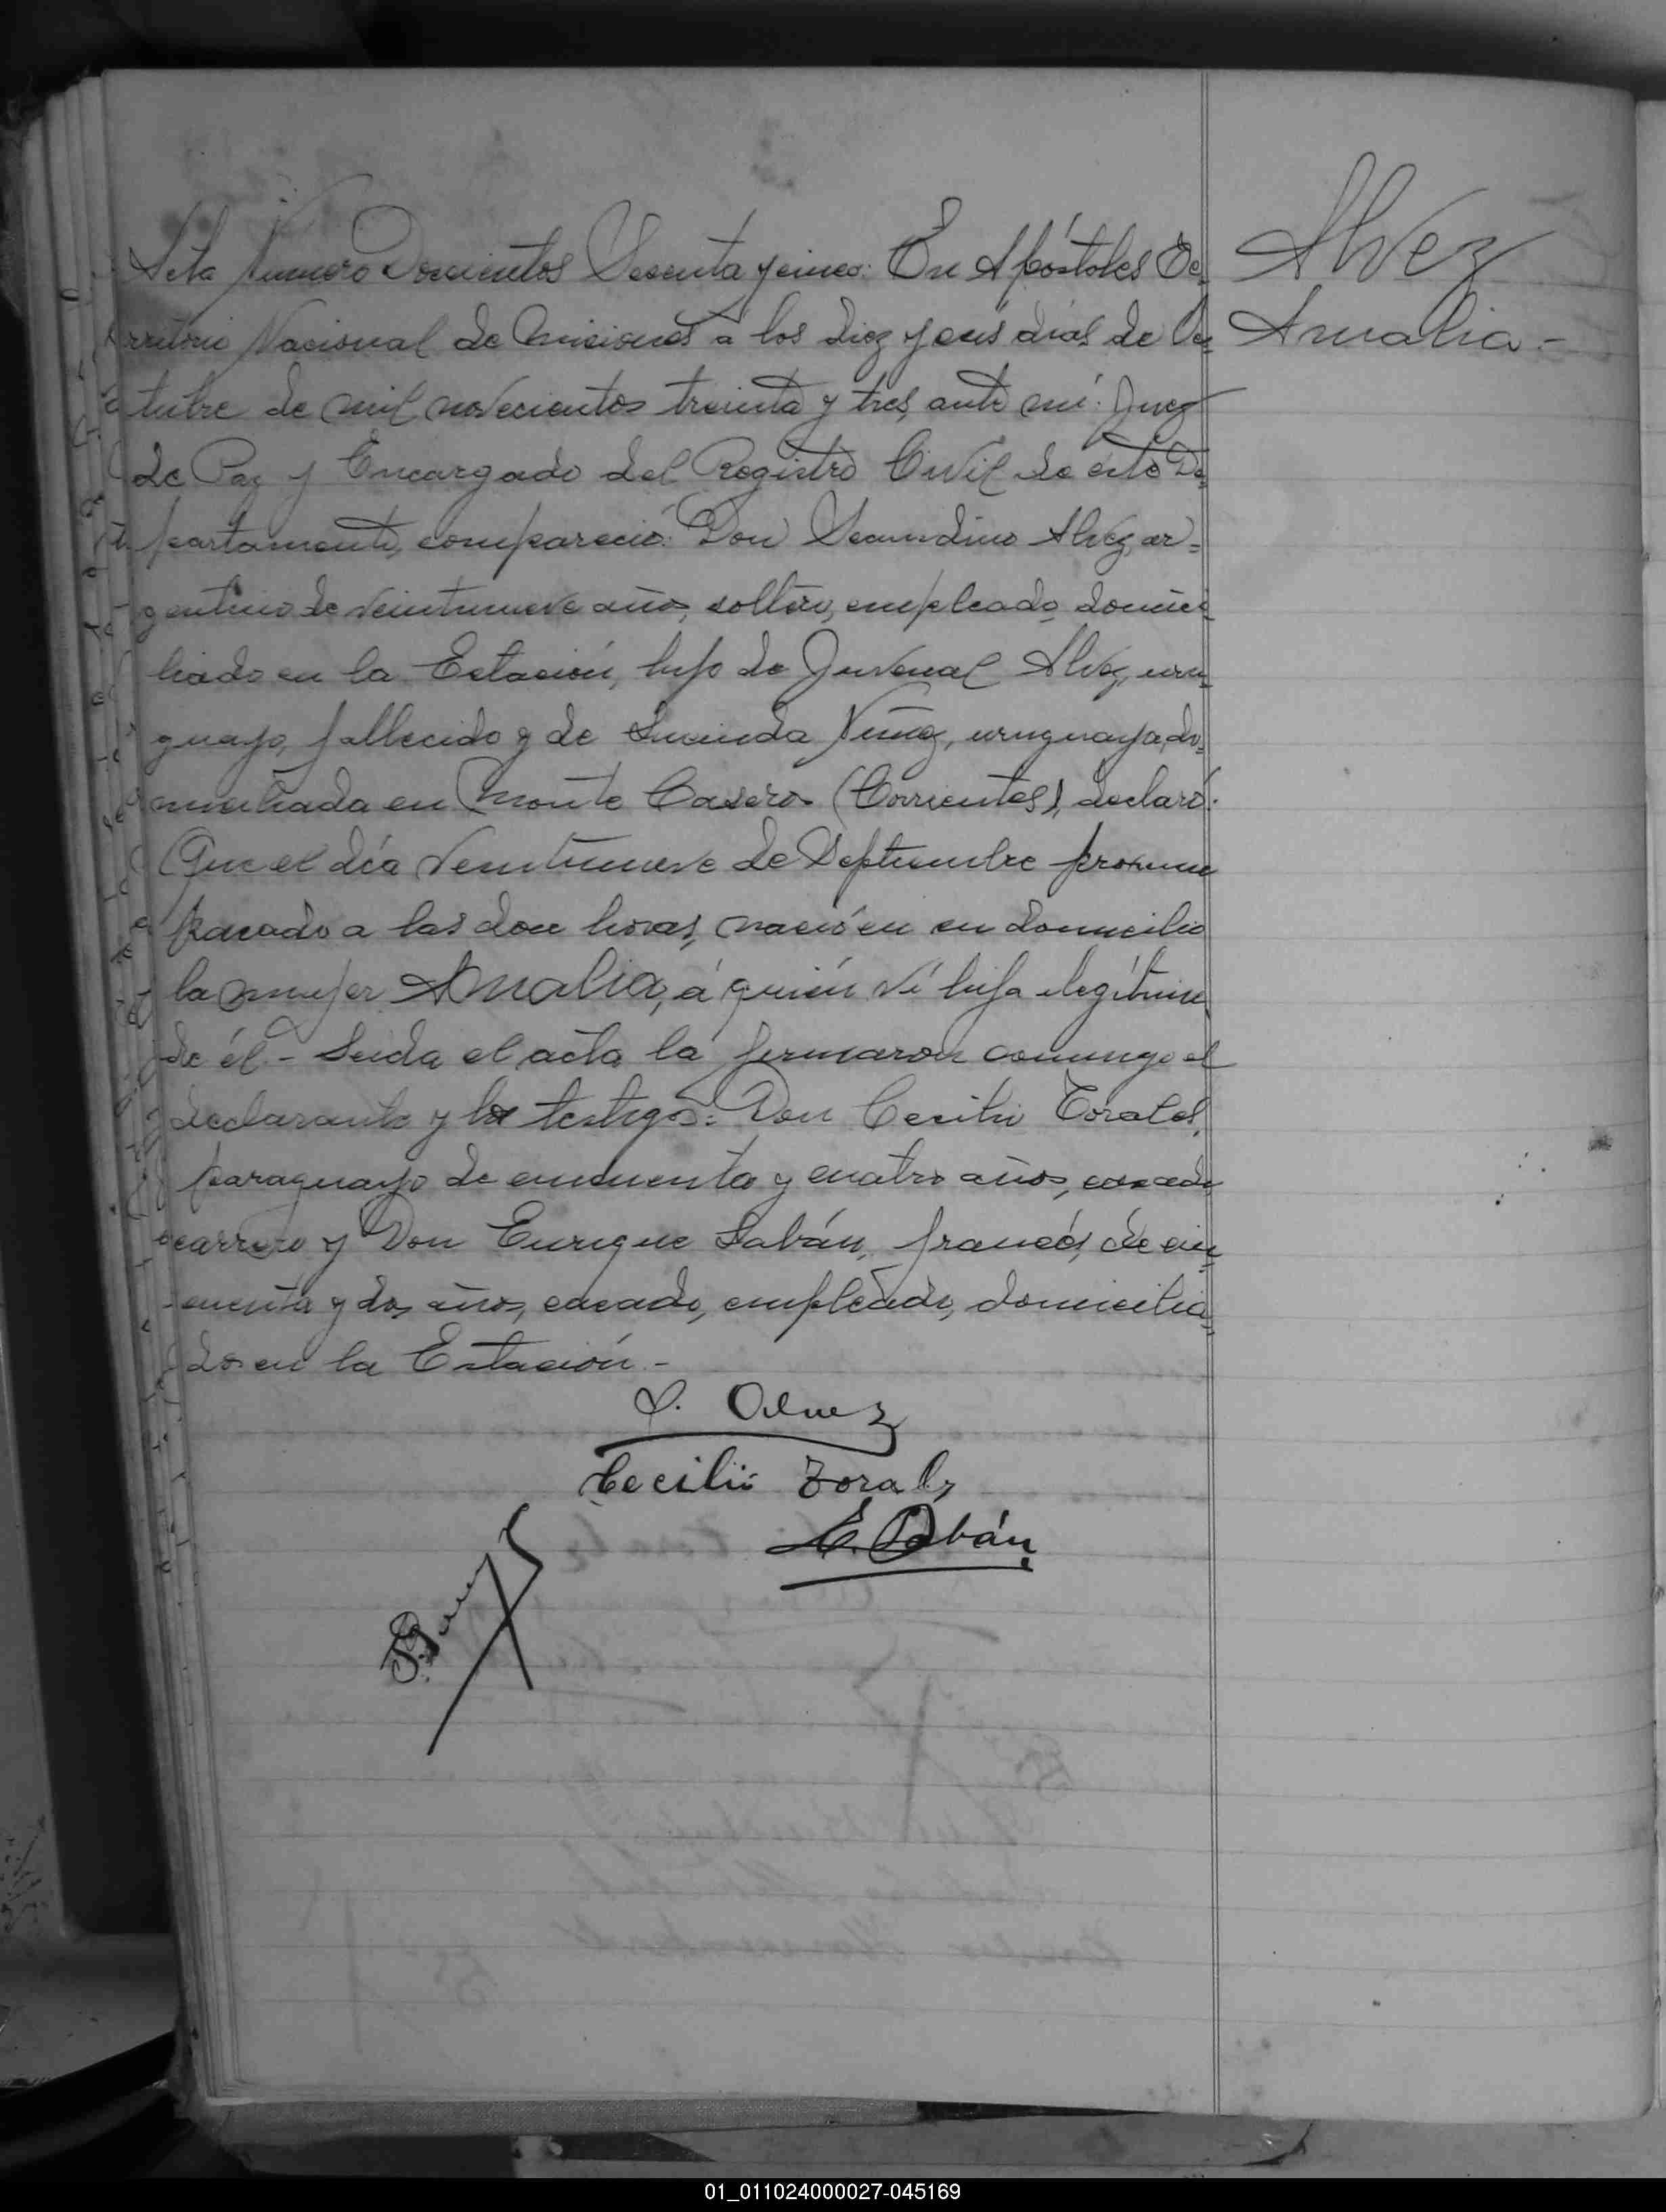 Acta Número Doscientos Sesenta y cinco: En Apóstoles Te-
rritorio Nacional de Misiones a los diez y seis días de Oc-
tubre de mil novecientos treinta y tres, ante mí: Juez
de Paz y Encargado del Registro Civil de este De-
partamento, compareció: Don Secundino Alvez, ar-
gentino de veintinueve años, soltero, empleado, domici-
liado en la Estación, hijo de Juvenal Alvez, uru-
guayo, fallecido y de Núñez, uruguaya, do-
miciliada en Monte Caseros (Corrientes), declaró:
Que el día veintinueve de Septiembre próximo
pasado a las doce horas, nació en su domicilio
la mujer Amalia, a quién ví hija ilegítima
de él.- Leida el acta la firmaron conmigo el
declarante y los testigos: Don Cecilio Torales,
paraguayo de cincuenta y cuatro años, casado
carrero y Don Enrique Labán, francés, de cin-
cuenta y dos años, casado, empleado, domicilia-
dos en la Estación.-
S. Alvez
Cecilio Torales
E. Labán
Alvez
Amalia.-
01_011024000027-045169